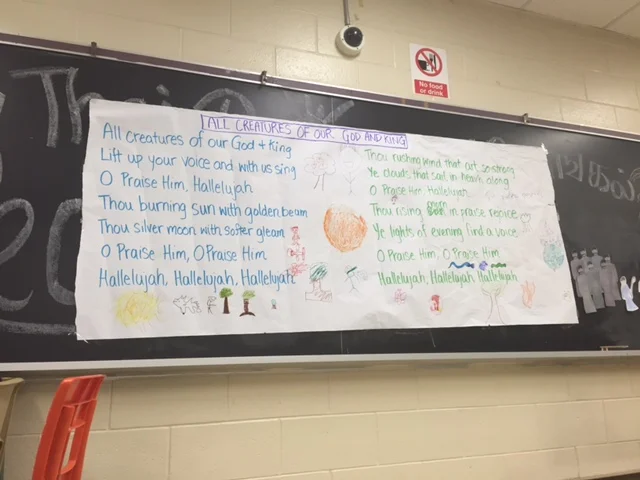 No food
or drink
ALL CREATURES OF OUR GOD AND KING
All Creatures of our God + King
Lift up your voice and with us sing
O Praise Him, Hallelujah
Thou burning sun with golden beam
Thou silver moon with softer gleam
O Praise Him, O Praise Him
Hallelujah, Hallelujah, Hallelujah
Thou rushing wind that art so strong
Ye clouds that sail in heav'n along
O Praise Him, Hallelujah
Thou rising morn in praise rejoice
Ye lights of evening find a voice
O Praise Him, O Praise Him
Hallelujah, Hallelujah, Hallelujah